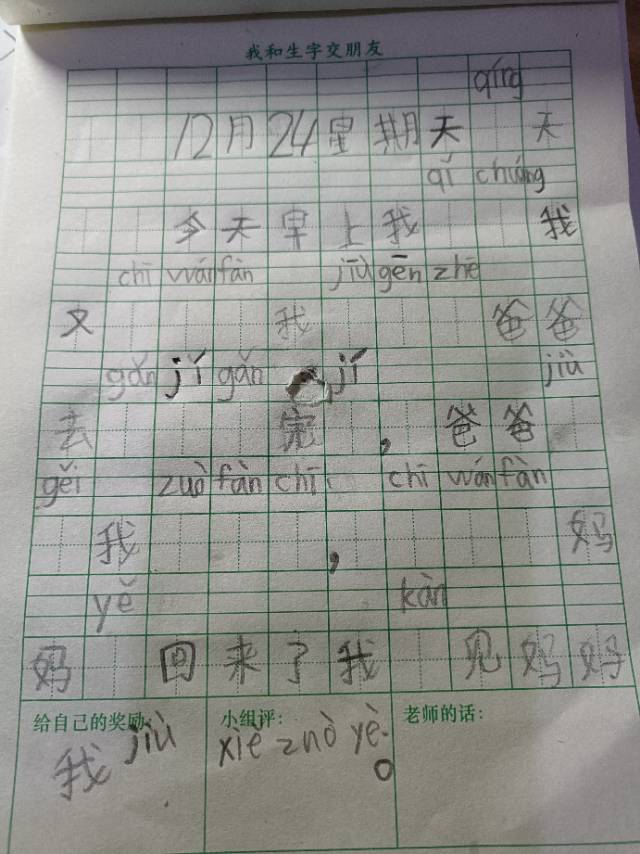 我和生字交朋友
qíng
12月24星期天 天
qǐ chuáng
今天早上我 我
chī wán fàn jiù gēn zhē
文 我 爸爸
gǎn jǐ gǎn jǐ jiù
去 完，爸爸
gěi zuò fàn chī chī wán fàn
我 ， 妈
yě kàn
妈 回来了我 见妈妈
给自己的奖励： 小组评： 老师的话：
我 jiù xiě zuò yè。